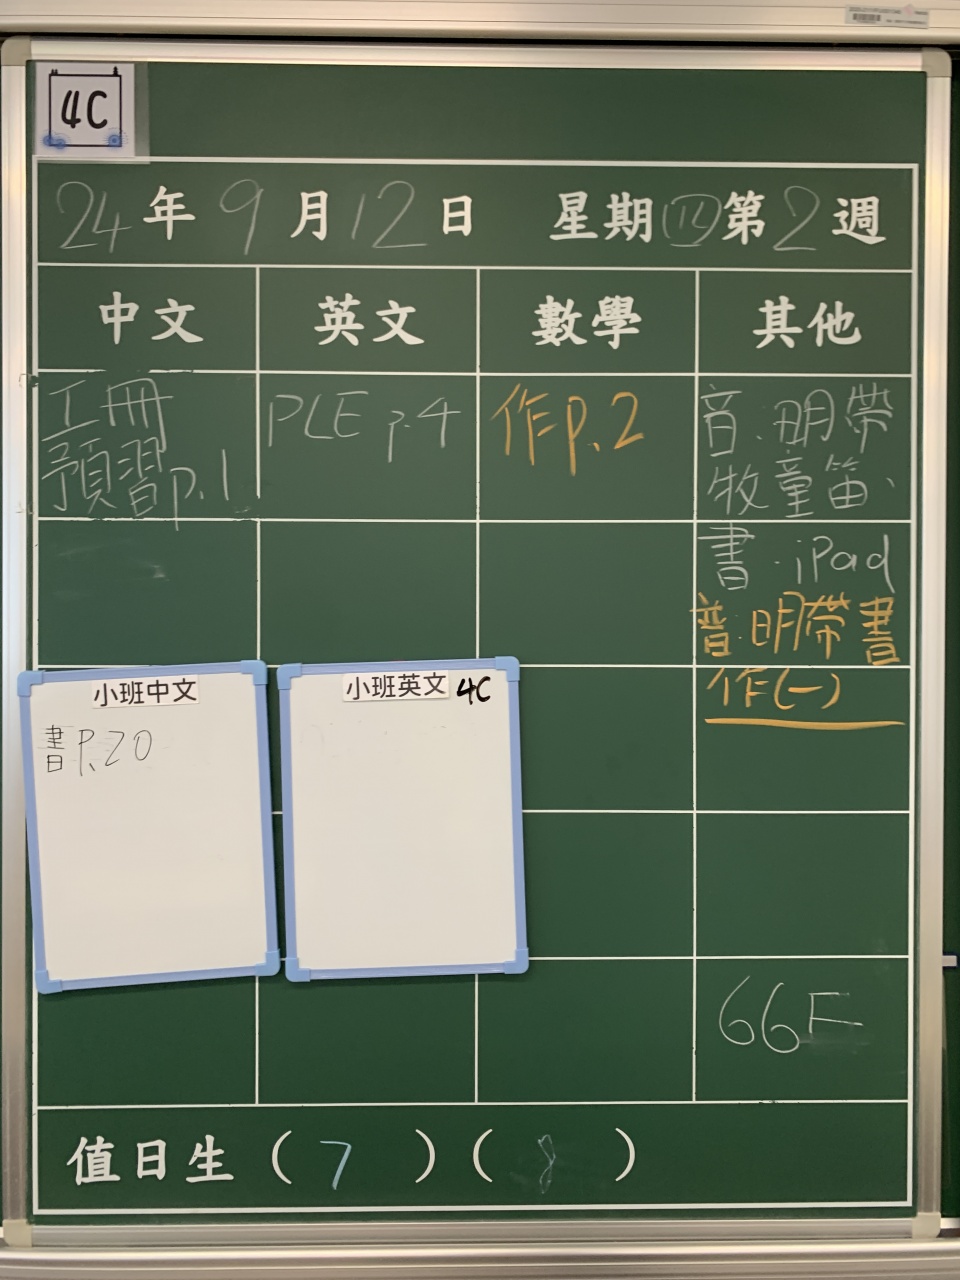 4C
24年9月12日 星期四第2週
中文 英文 數學 其他
工冊
預習p.1
PLE p.4
作p.2
音:明帶
牧童笛、
書.iPad
普:明帶書
作(一)
小班中文
書P.20
小班英文 4C
66F
值日生(7)(8)